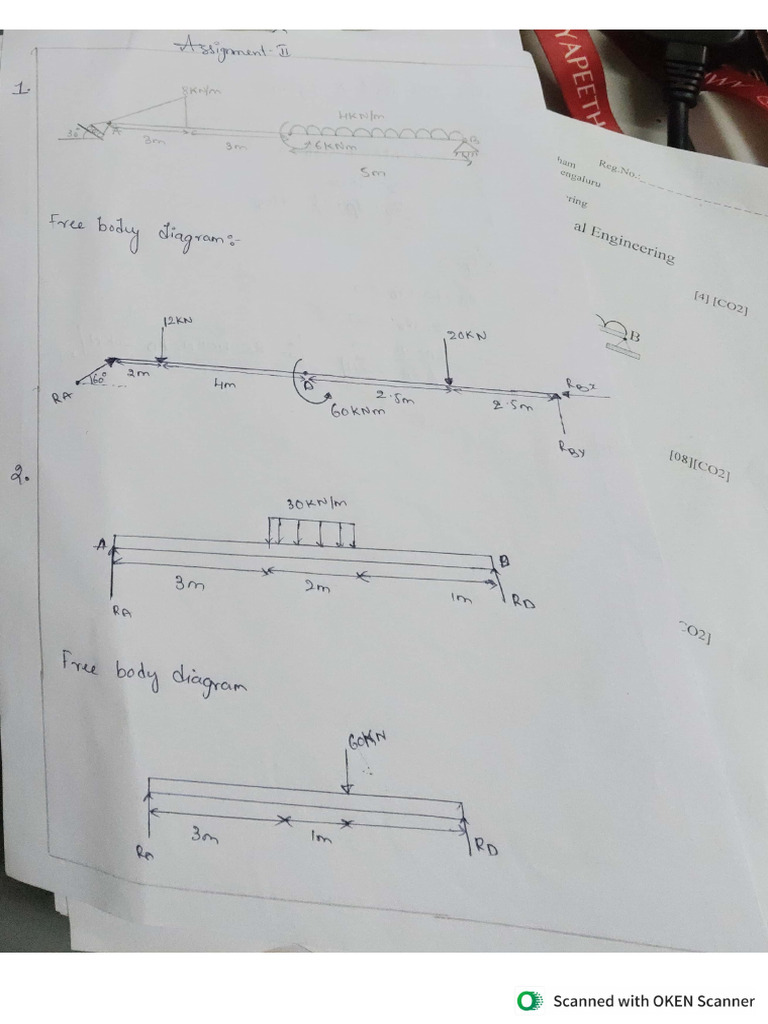 YAPEETH
Assignment-II
1.
8KN/m
4KN/m
30°
A
C
B
3m
3m
6KNm
5m
ham
Reg.No.:
engaluru
ring
al Engineering
[4] [CO2]
B
Free body diagram:-
12KN
20KN
60°
2m
4m
D
2.5m
2.5m
RBX
RA
60KNm
RBY
[08][CO2]
2.
30KN/m
A
B
3m
2m
1m
RA
RD
CO2]
Free body diagram
60KN
3m
1m
RA
RD
Scanned with OKEN Scanner